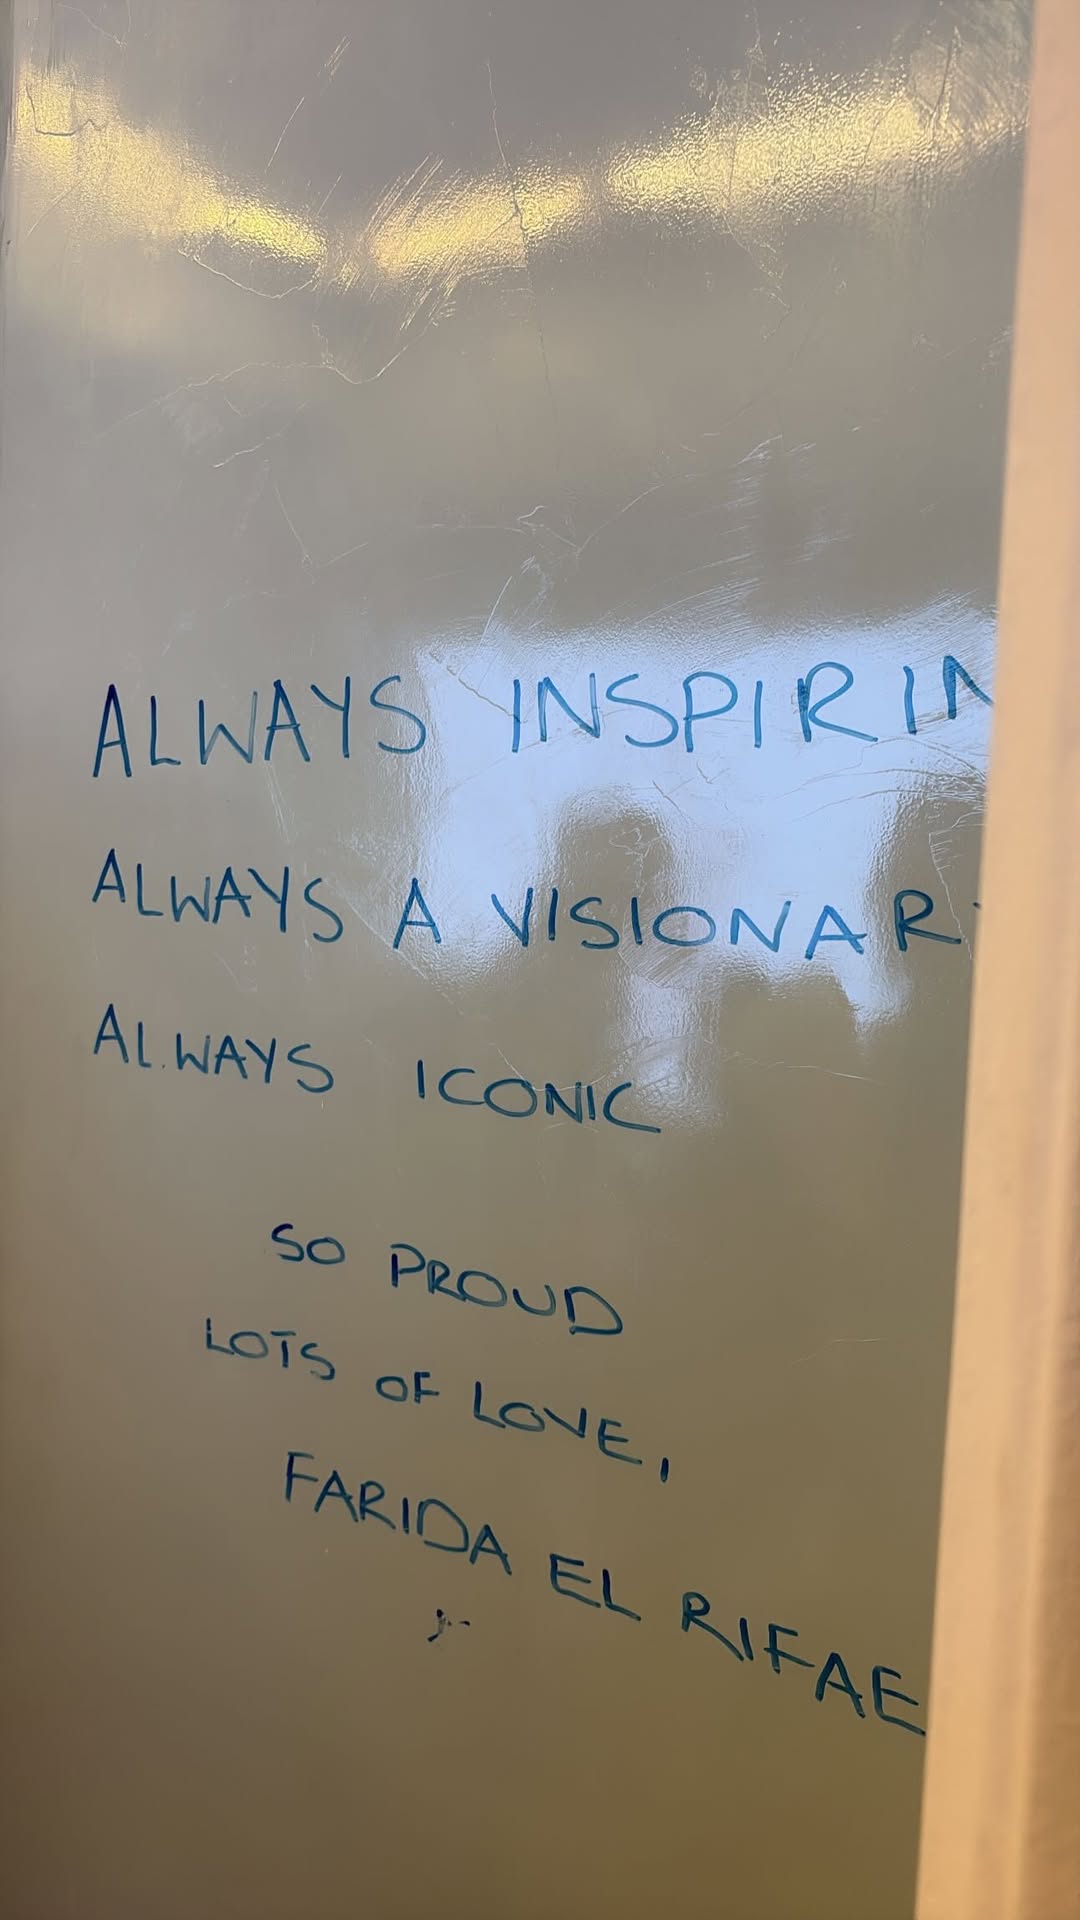 ALWAYS INSPIRIN
ALWAYS A VISIONAR
ALWAYS ICONIC
SO PROUD
LOTS OF LOVE,
FARIDA EL RIFAE